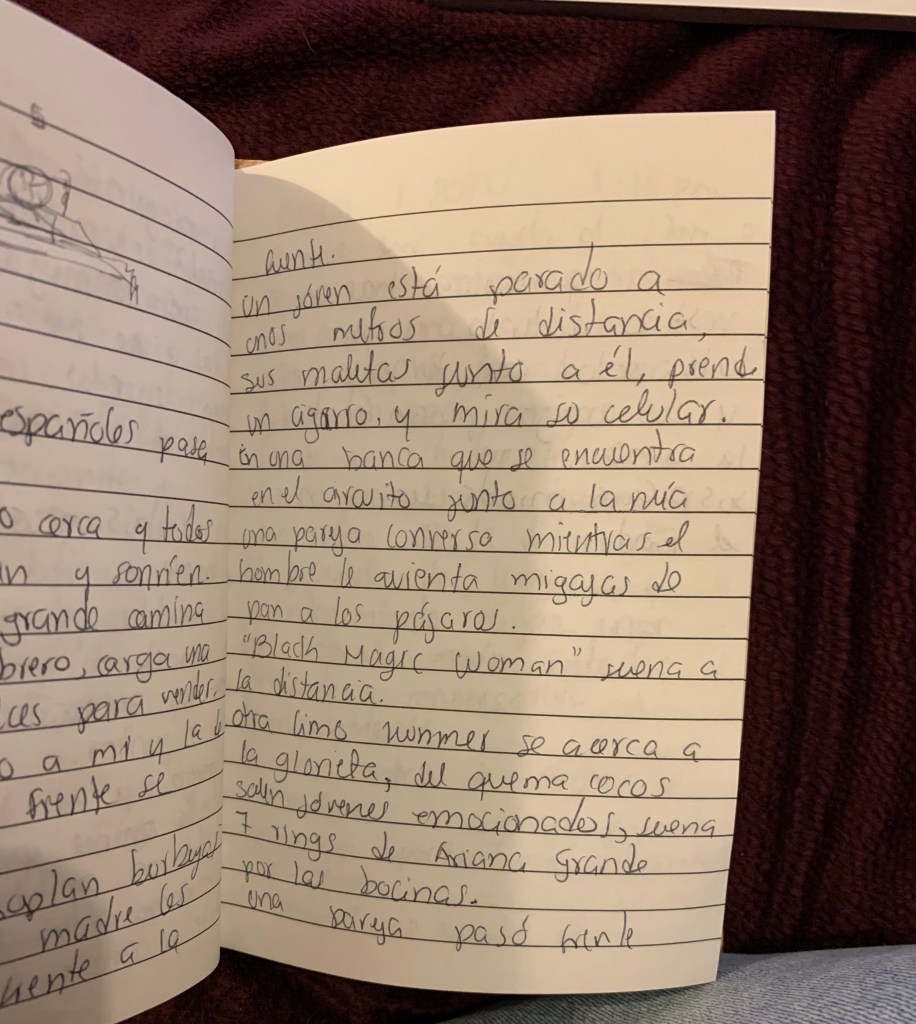 españoles pasa
o cerca y todos
n y sonríen.
grande camina
brero, carga una
ces para vender.
o a mi y la
frente se
soplan burbujas
madre los
uente a la
fuente.
Un jóven está parado a
unos metros de distancia,
sus maletas junto a él, prende
un cigarro, y mira su celular.
En una banca que se encuentra
en el circuito junto a la mía
una pareja conversa mientras el
hombre le avienta migajas de
pan a los pájaros.
"Black Magic Woman" suena a
la distancia.
Otra limo hummer se acerca a
la glorieta, del quema cocos
salen jóvenes emocionados, suena
7 rings de Ariana Grande
por las bocinas.
Una pareja pasó frente